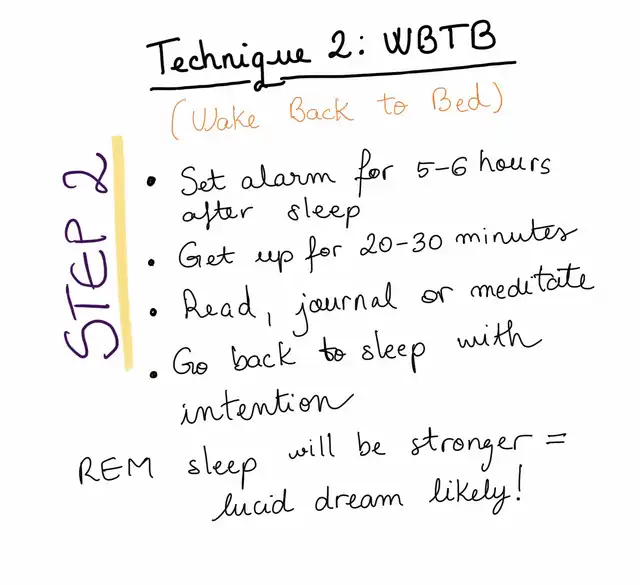 Technique 2: WBTB
(Wake Back to Bed)
STEP 2
• Set alarm for 5-6 hours
after sleep
• Get up for 20-30 minutes
• Read, journal or meditate
• Go back to sleep with
intention
REM sleep will be stronger =
lucid dream likely!